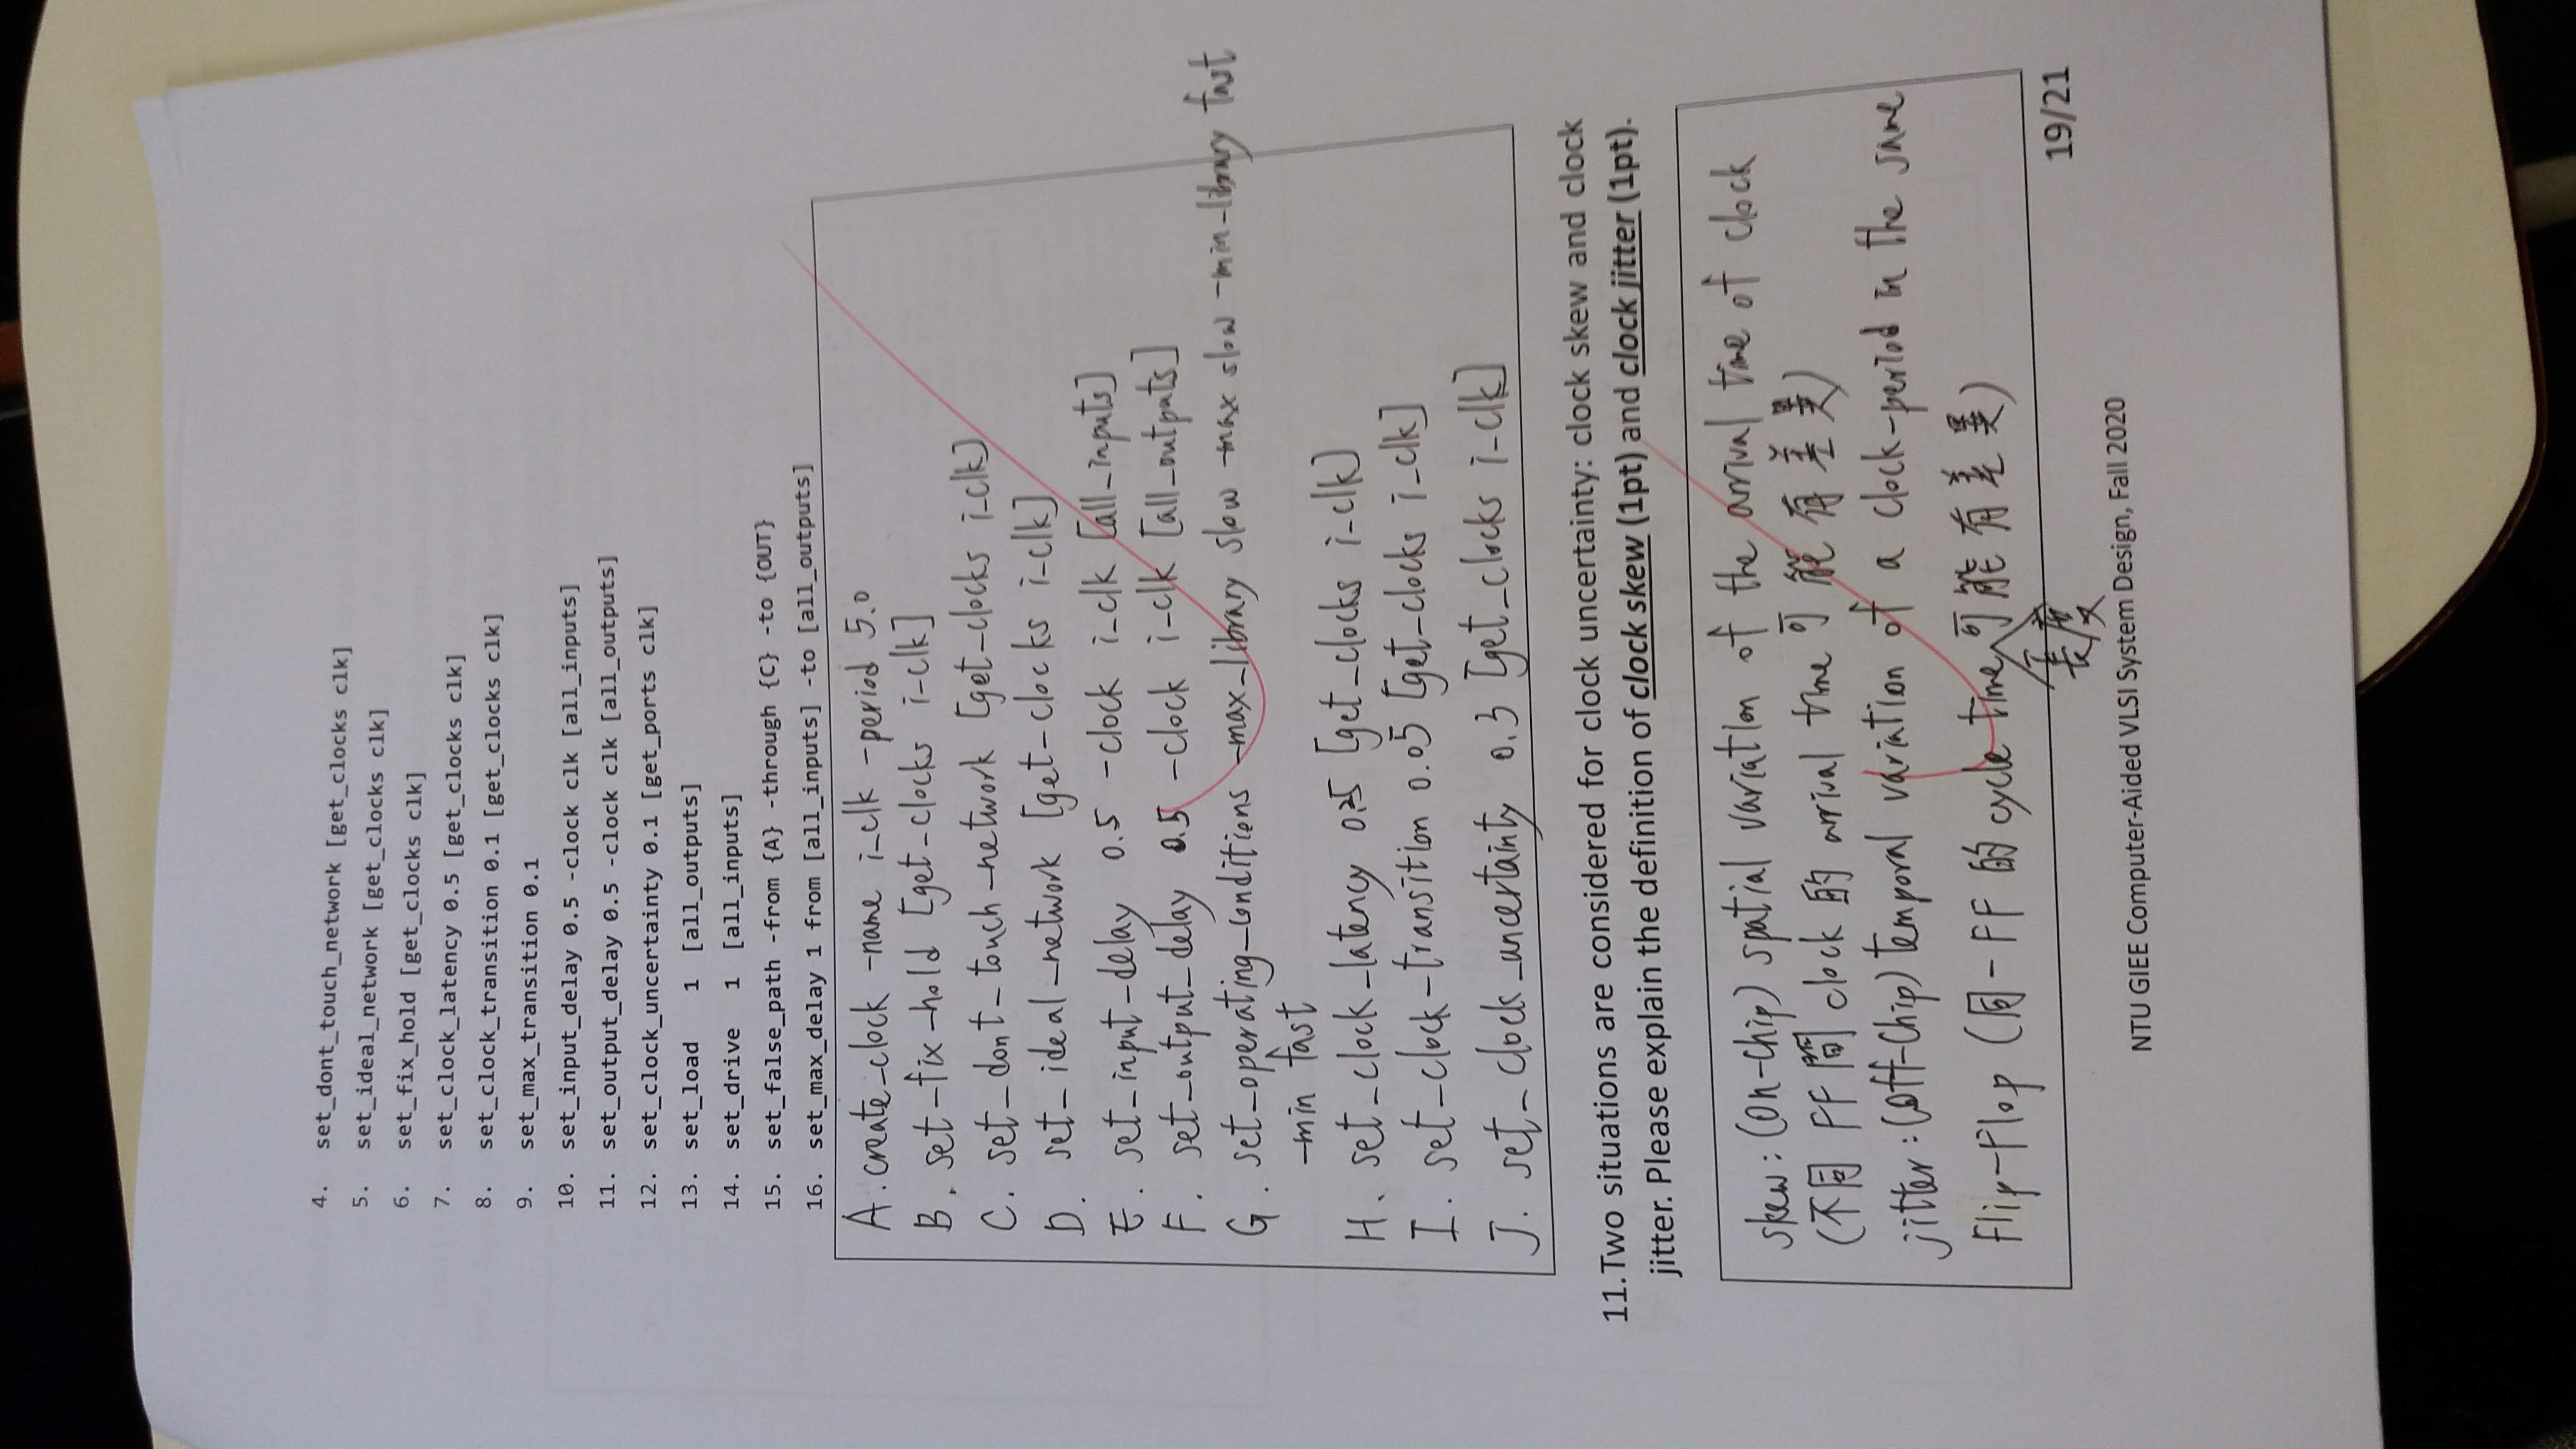 4. set_dont_touch_network [get_clocks clk]
5. set_ideal_network [get_clocks clk]
6. set_fix_hold [get_clocks clk]
7. set_clock_latency 0.5 [get_clocks clk]
8. set_clock_transition 0.1 [get_clocks clk]
9. set_max_transition 0.1
10. set_input_delay 0.5 -clock clk [all_inputs]
11. set_output_delay 0.5 -clock clk [all_outputs]
12. set_clock_uncertainty 0.1 [get_ports clk]
13. set_load 1 [all_outputs]
14. set_drive 1 [all_inputs]
15. set_false_path -from {A} -through {C} -to {OUT}
16. set_max_delay 1 from [all_inputs] -to [all_outputs]
A. create_clock -name i_clk -period 5.0
B. set-fix-hold [get-clocks i-clk]
C. set_dont_touch_network [get_clocks i_clk]
D. set_ideal_network [get-clocks i-clk]
E. set_input_delay 0.5 -clock i_clk [all_inputs]
F. set_output_delay 0.5 -clock i-clk [all_outputs]
G. set_operating_conditions -max_library slow -max slow -min-library fast
-min fast
H. set_clock_latency 0.25 [get_clocks i-clk]
I. set_clock-transition 0.05 [get_clocks i_clk]
J. set_clock_uncertainty 0.3 [get_clocks i-clk]
11. Two situations are considered for clock uncertainty: clock skew and clock
jitter. Please explain the definition of clock skew (1pt) and clock jitter (1pt).
skew: (On-Chip) spatial variation of the arrival time of clock
(不同 FF 間 clock 的 arrival time 可能有差異)
jitter: (Off-Chip) temporal variation of a clock-period in the same
Flip-Flop (同一FF 的 cycle time 長度 可能有差異)
19/21
NTU GIEE Computer-Aided VLSI System Design, Fall 2020